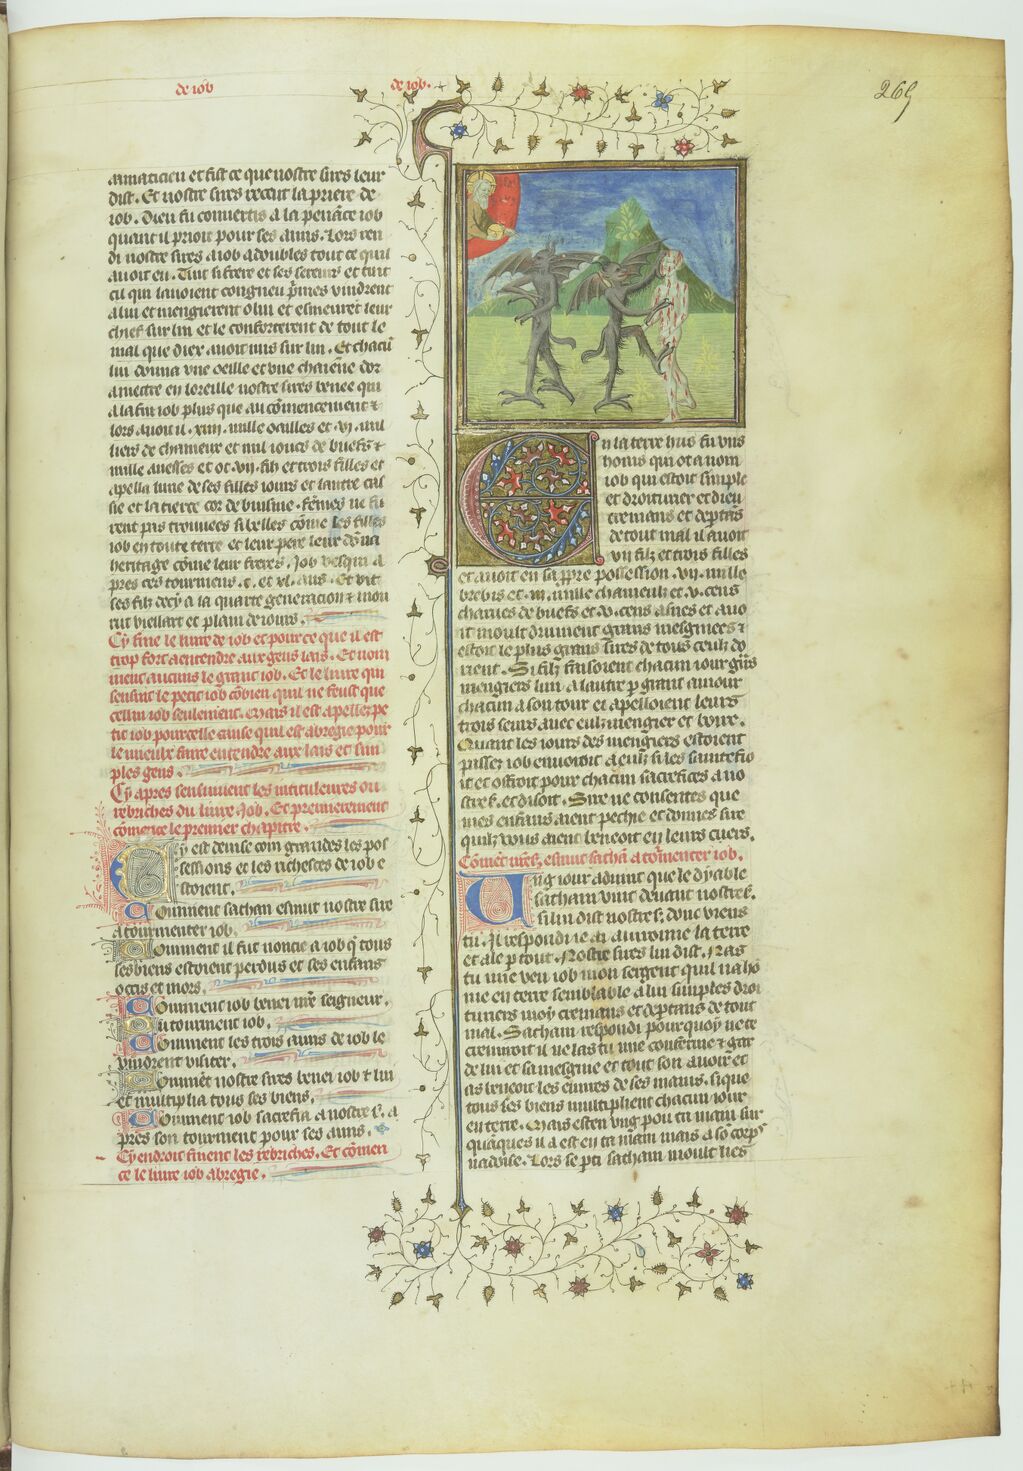 de iob
de iob.
265
amaticien et fist ce que nostre sires leur
dist. Et nostre sires receut la priere de
iob. Dieu fu convertis a la penãce iob
quant il prioit pour ses amis. Lors ren
di nostre sires a iob a doubles tout ce quil
avoit eu. Tuit si frere et ses sereurs et tuit
cil qui lavoient congneu p̃mes vindrent
a lui et mengierent o lui et esmeurent leur
chief sur lui et le conforterent de tout le
mal que diex avoit mis sur lui. Et chacũ
lui donna une oeille et une chaiene dor
a mettre en loreille nostre sires benei
a la fin iob plus que au cõmencement &
lors avoit il .xiiii. mille oeilles et .vi. mil
liers de chameux et mil ioues de buefs &
mille anesses et ot .vii. filz et trois filles et
apella lune de ses filles iours et lautre cas
sie et la tierce cor de buisine. Fẽmes ne fu
rent pas trouvees si belles cõme les filles
iob en toute terre et leur pere leur dõna
heritage cõme leur freres. Iob vesqui a
pres ces tourmens .c. et xl. ans. Et vit
ses filz decy a la quarte generacion & mou
rut viellart et plain de iours.
Cy fine le livre de iob et pour ce que il est
trop fort a entendre aux gens lais. Et nom
ment aucuns le grant iob. Et le livre qui
sensuit le petit iob cõbien quil ne feust que
cellui iob seulement. Mais il est apellez pe
tit iob pour celle cause quil est abregie pour
le mieulx faire entendre aux lais et sim
ples gens.
Cy apres sensuivent les intituleures ou
rebriches du livre Iob. Et premierement
cõmence le premier chapitre.
Cy est devise com grandes les pos
sessions et les richesces de iob e
stoient.
Comment sathan esmut nostre sire
a tourmenter iob.
Comment il fut noncie a iob q̃ tous
ses biens estoient perdus et ses enfans
occis et mors.
Comment iob benei nr̃e seigneur.
Du tourment iob.
Comment les trois amis de iob le
vindrent visiter.
Commẽt nostre sires benei iob & lui
et multiplia tous ses biens.
Comment iob sacrefia a nostre s. a
pres son tourment pour ses amis.
Cy endroit finent les rebriches. Et cõmen
ce le livre iob abregie.
En la terre hus fu uns
homs qui ot a nom
iob qui estoit simple
et droiturier et dieu
cremans et deptãs
de tout mal il avoit
vii filz et trois filles
et avoit en sa ppre possession .vii. mille
brebis et .iii. mille chameulx et .v. cens
charues de buefs et .v. cens asnes et avo
it moult durement grans mesgniees &
estoit le plus grans sires de tous ceulx do
rient. Si filz faisoient chacun iour grãs
mengiers lun a lautre p grant amour
chacun a son tour et apelloient leurs
trois seurs avec eulz mengier et boire.
Quant les iours des mengiers estoient
passez iob envoioit a eulx si les saintefio
it et offroit pour chacun sacrefices a no
stre s. et disoit. Sire ne consentes que
mes enfans aient pechie et donnes sire
quilz vous aient beneoit en leurs cuers.
Cõmẽt esmut sathã a tormenter iob.
Ung iour advint que le dyable
sathan vint devant nostre s.
si lui dist nostre s. dont viens
tu. Il respondi ie ai avironne la terre
et ale p tout. Nostre sires lui dist. Nas
tu mie veu iob mon sergent quil na hõ
me en terre semblable a lui simples droi
turiers moy cremans et deptans de tout
mal. Sathan respondi pourquoy ne te
cremiroit il ne las tu mie couvertine & gar
de lui et sa mesgnie et tout son avoir et
as beneoit les euvres de ses mains. si que
tous ses biens multiplient chacun iour
en terre. Mais esten ung pou ta main sur
quãques il a est en ta main mais a sõ corps
Lors se pti sathan moult lies